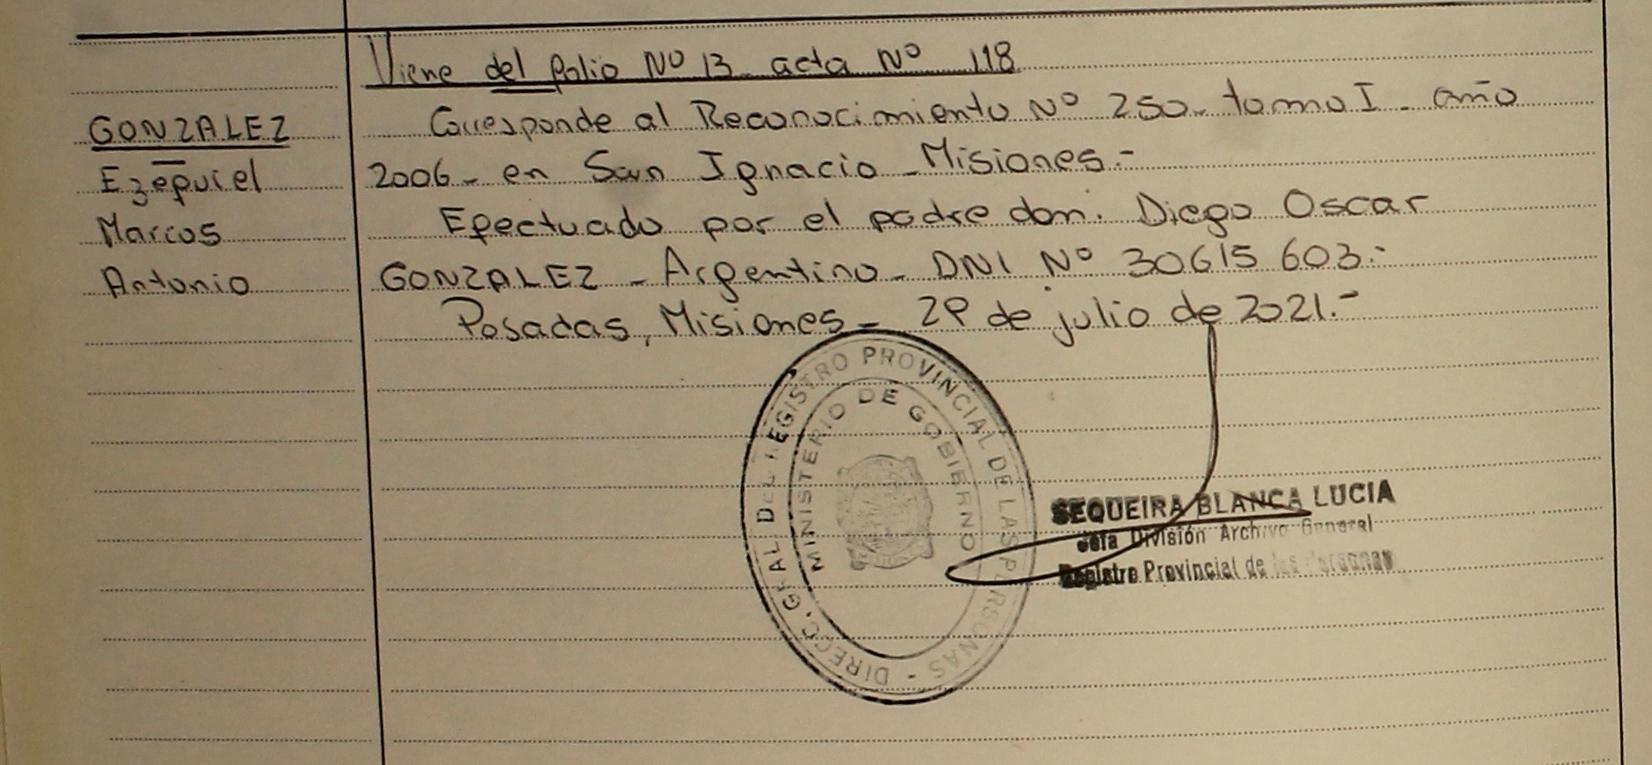 Viene del folio Nº 13 acta Nº 118
GONZALEZ
Ezequiel
Marcos
Antonio
Corresponde al Reconocimiento Nº 250- tomo I - año
2006- en San Ignacio - Misiones.-
Efectuado por el padre don. Diego Oscar
GONZALEZ - Argentino - DNI Nº 30615603.-
Posadas, Misiones - 29 de julio de 2021.-
DIRECC. GRAL DEL REGISTRO PROVINCIAL DE LAS PERSONAS -
MINISTERIO DE GOBIERNO
SEQUEIRA BLANCA LUCIA
Jefa División Archivo General
Registro Provincial de las Personas